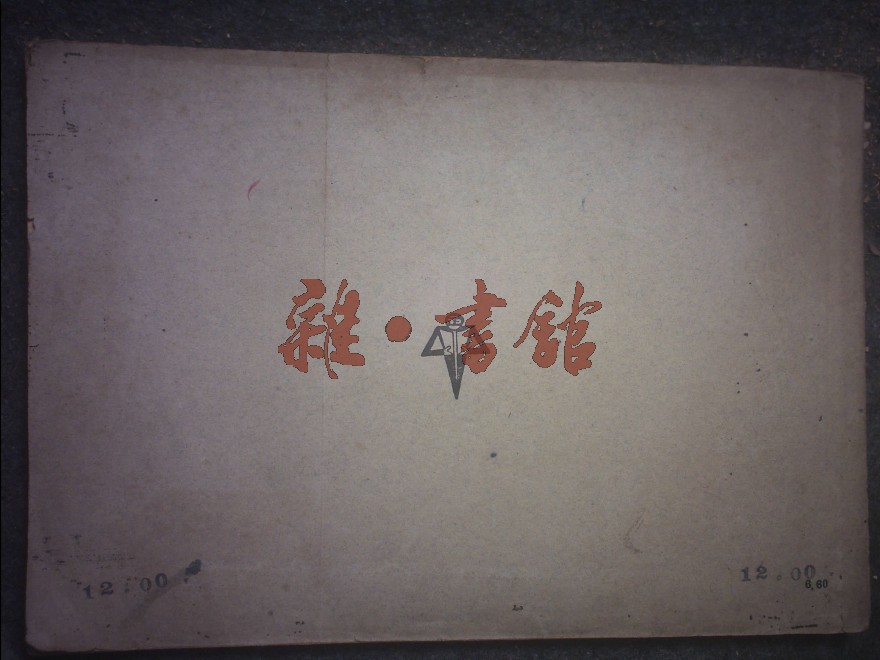 雜·書館
12.00
12.00
6.60